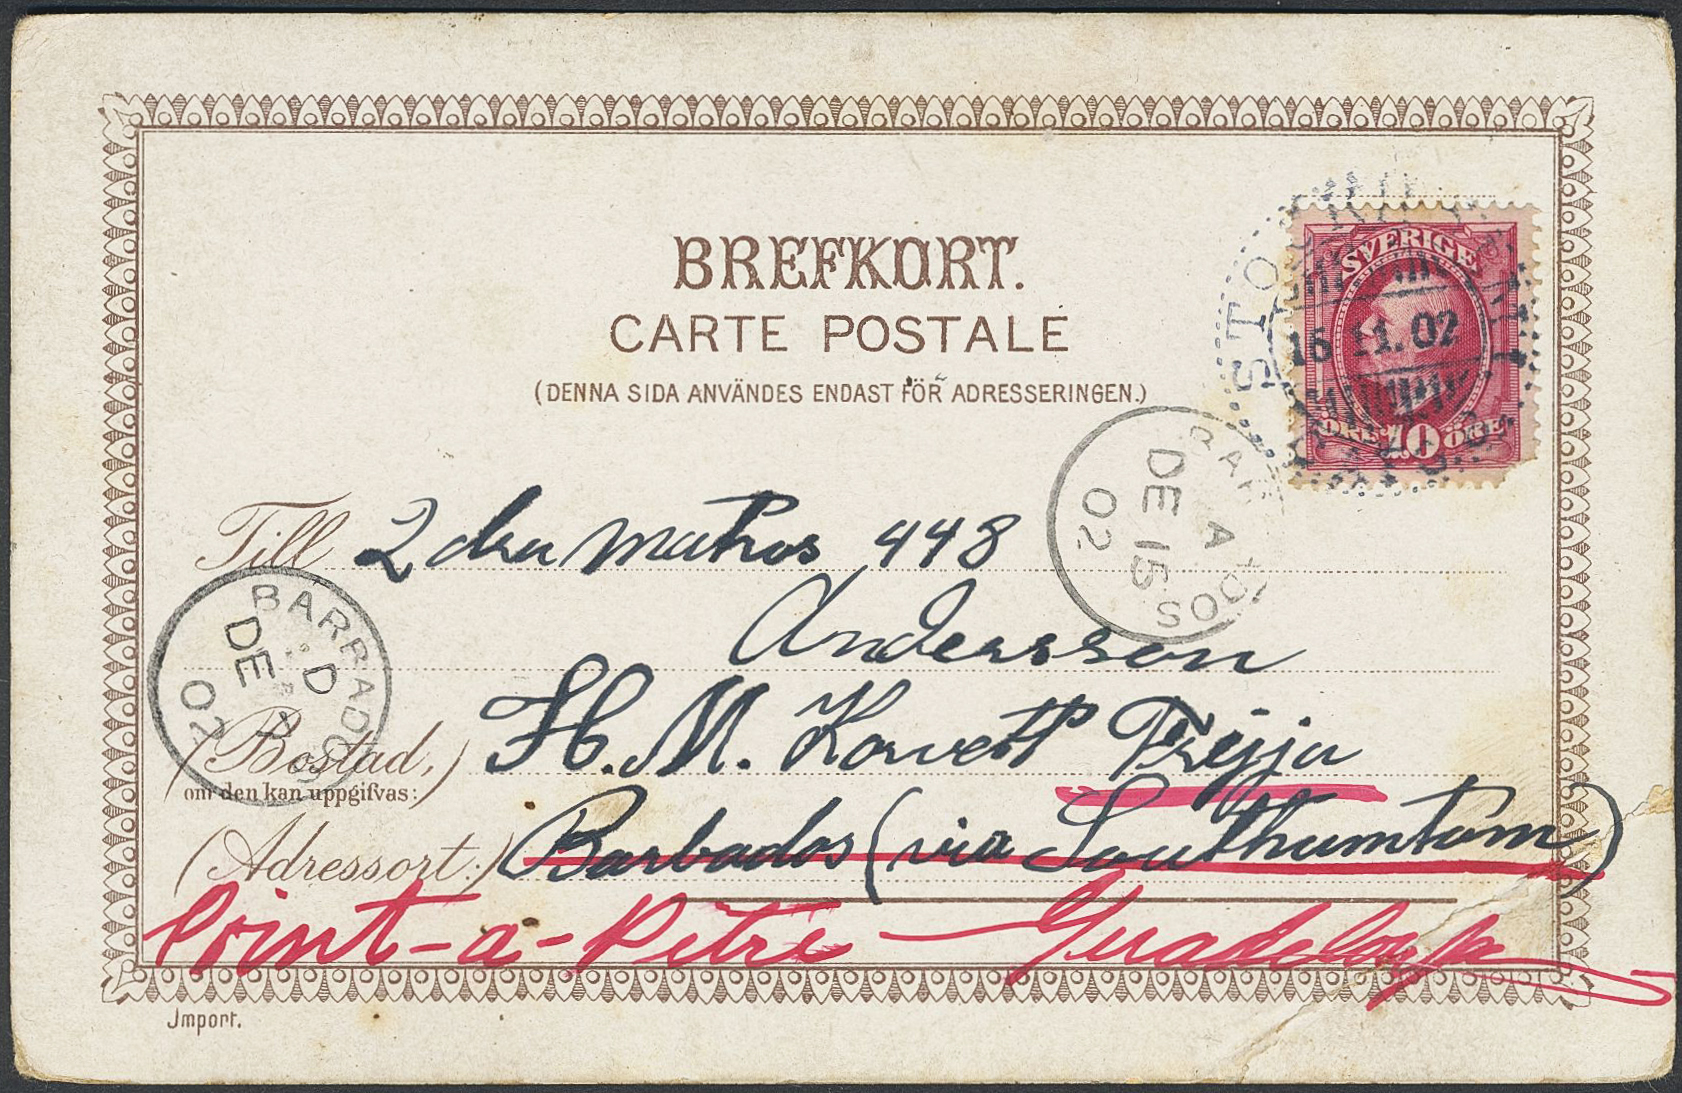 BREFKORT.
CARTE POSTALE
(DENNA SIDA ANVÄNDES ENDAST FÖR ADRESSERINGEN.)
SVERIGE
ÖRE 10 ÖRE
STOCKHOLM
15 11. 02
BARBADOS
A
DE 15
02
Till 2dra matros 448
Andersson
BARBADOS
D
DE
02
(Bostad,) H. M. Korvett Freyja
om den kan uppgifvas:
(Adressort:) Barbados (via Southamtom)
Point-a-Pitre — Guadeloupe
Import.